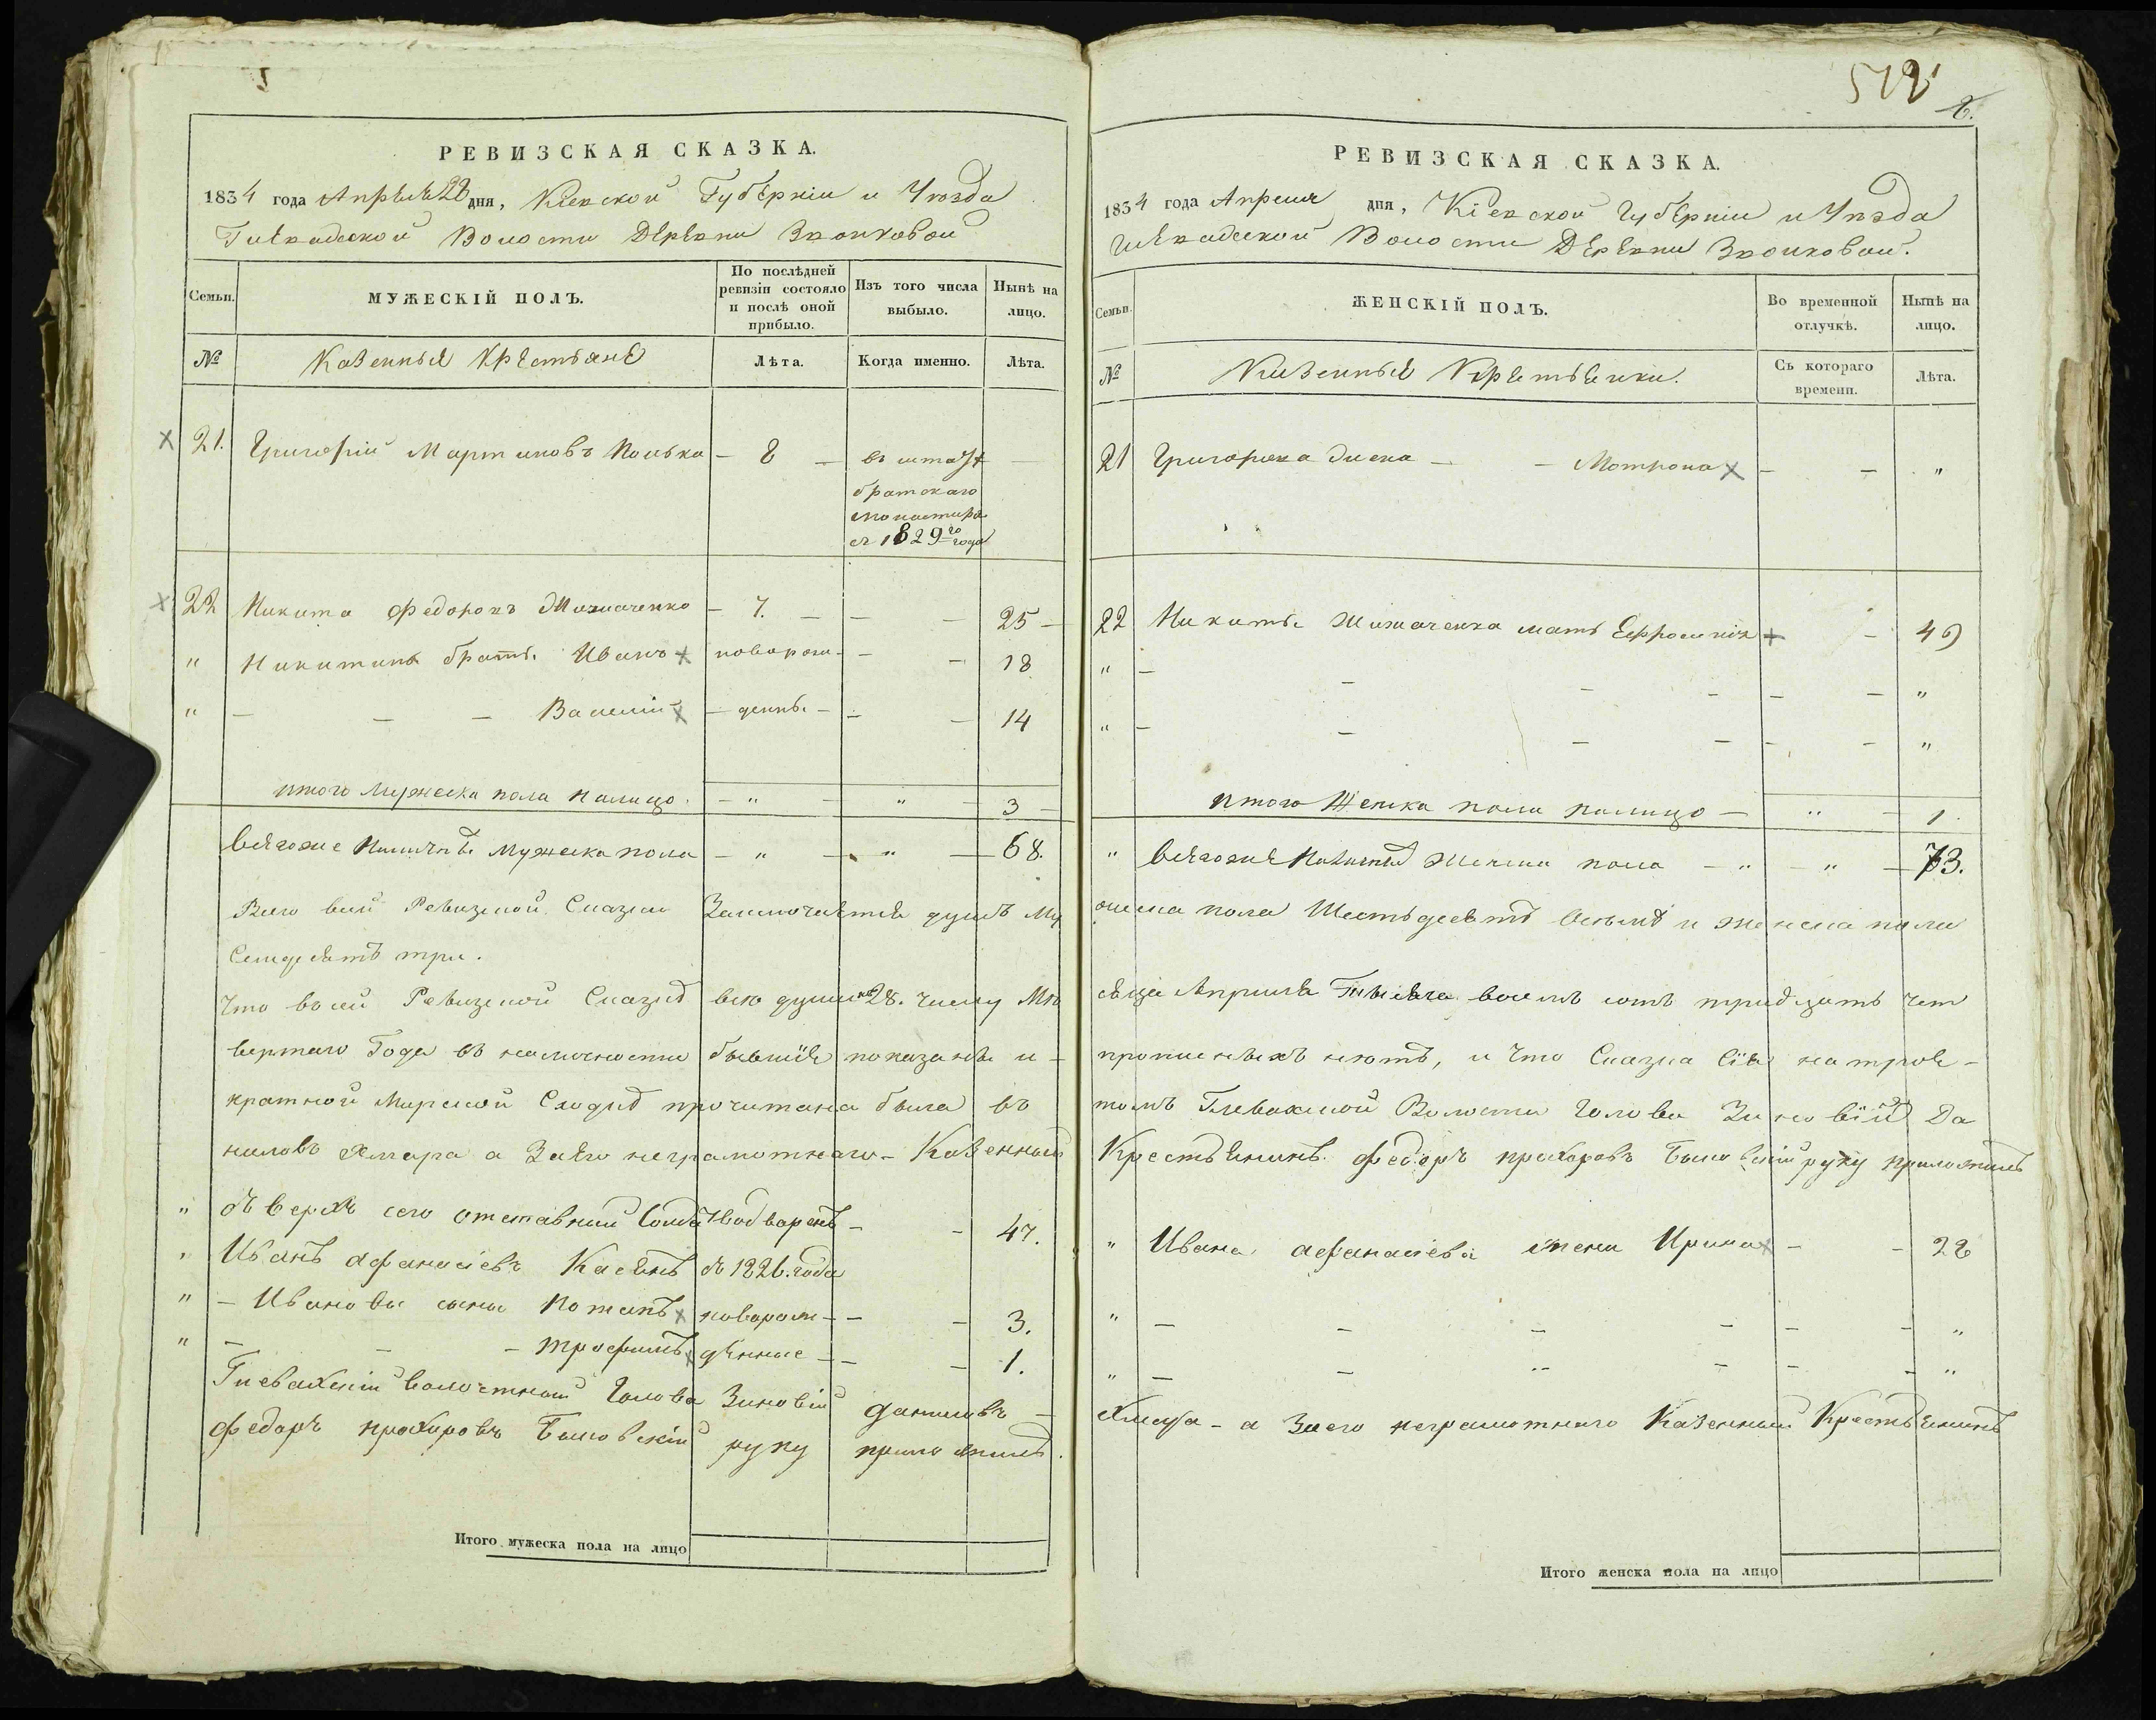 РЕВИЗСКАЯ СКАЗКА.
1834 года Апреля 28 дня, Кіевской Губерніи и Уезда
Глевахской Волости Деревни Звонковой
Семьи.
МУЖЕСКІЙ ПОЛЪ.
По послѣдней ревизіи состояло и послѣ оной прибыло.
Изъ того числа выбыло.
Нынѣ на лицо.
№
Казенные Крестьяне
Лѣта.
Когда именно.
Лѣта.
21. Григорій Мартиновъ - 8 -
въ штат
братскаго
монастира
съ 1829го года
22 Никита Федоровъ - 7. - - - 25 -
" Никитины братья Иванъ новорож- - - 18
" - - - Василий - денны - - - 14
итого Мужеска пола налицо. - " - " - 3 -
Всегоже Наличныхъ мужеска пола - " - " - 68.
Всего всей Ревизской Сказки Заключается душъ Му
Семдесятъ три.
Что въ сей Ревизской Сказке все души по 28. числу Ме
вертаго Года въ наличности бывшіе показаны и -
кратной Мирской Сходке прочитана была въ
ниловъ Хмара а За его неграмотнаго - Казенный
" съ верхъ сего отставний Солдатъ - - 47.
" Иванъ Афанасіевъ съ 1826. года
" - Ивановы сыны Потапъ новорож- - - 3.
" - - - Трофимъ денные - - - 1.
Глевахскій Волостной Голова Зиновій Даниловъ -
Федоръ Прохоровъ руку приложилъ.
Итого мужеска пола на лицо
512
6.
РЕВИЗСКАЯ СКАЗКА.
1834 года Апреля дня, Кіевской Губерніи и Уезда
Глевахской Волости Деревни Звонковой.
Семьи.
ЖЕНСКІЙ ПОЛЪ.
Во временной отлучкѣ.
Нынѣ на лицо.
№
Казенные Крестьянки.
Съ котораго времени.
Лѣта.
21 Григорева жена - - Мотрона - - "
22 Никиты мать Ефросинія - 49
" - - - - - - "
" - - - - - - "
итого Женска пола налицо - " - 1.
" Всегоже Наличныхъ Женска пола - " - " - 73.
жеска пола Шестьдесятъ восьмъ и женска пола
сяца Апреля Тысяча восемъ сотъ тридцать чет
прописныхъ нетъ, и что Сказка Сія на трое-
томъ Глевахской Волости Голова Зиновій Да
Крестьянинъ Федоръ Прохоровъ руку приложилъ
" Ивана Афанасіева жена Ирина - - 28
" - - - - - - "
" - - - - - - "
Хмара - а За его неграмотнаго Казенный Крестьянинъ
Итого женска пола на лицо